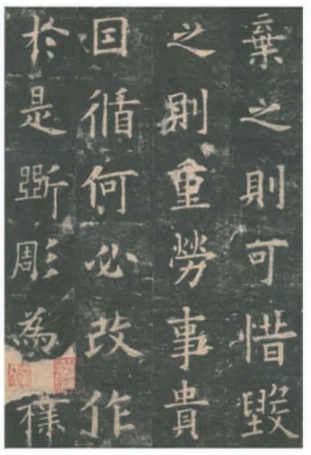 棄之則可惜毀
之則重勞事貴
囙循何必改作
扵是斲彫為樸